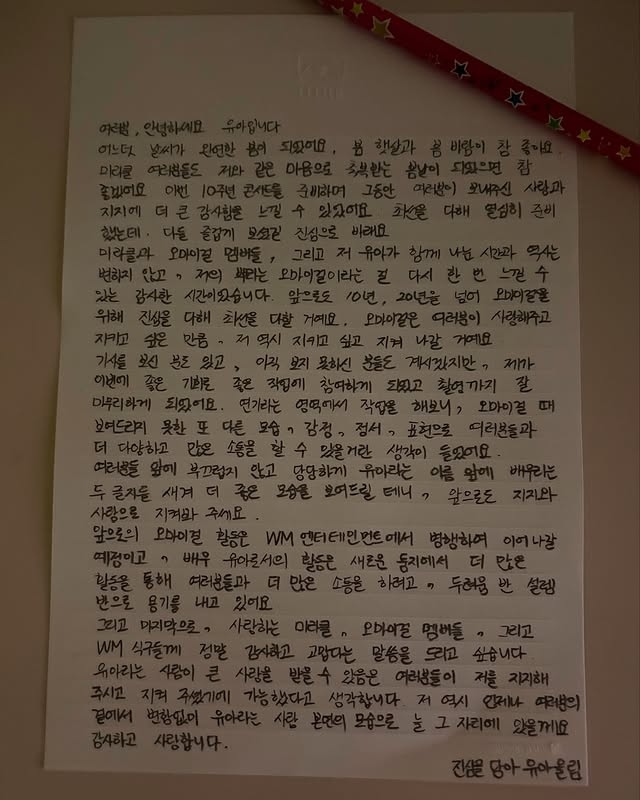 여러분, 안녕하세요 유아입니다
어느덧 날씨가 완연한 봄이 되었어요, 봄 햇살과 봄 바람이 참 좋아요.
미라클 여러분들도 저와 같은 마음으로 축복받는 봄날이 되었으면 참
좋겠어요 이번 10주년 콘서트를 준비하며 그동안 여러분이 보내주신 사랑과
지지에 더 큰 감사함을 느낄 수 있었어요 최선을 다해 열심히 준비
했는데. 다들 즐겁게 보셨길 진심으로 바래요
미라클과 오마이걸 멤버들, 그리고 저 유아가 함께 나눈 시간과 역사는
변하지 않고, 저의 뿌리는 오마이걸이라는 걸 다시 한 번 느낄 수
있는 감사한 시간이었습니다. 앞으로도 10년, 20년을 넘어 오마이걸을
위해 진심을 다해 최선을 다할 거예요. 오마이걸은 여러분이 사랑해주고
지키고 싶은 만큼, 저 역시 지키고 싶고 지켜 나갈 거예요
기사를 보신 분도 있고, 아직 보지 못하신 분들도 계시겠지만, 제가
이번에 좋은 기회로 좋은 작업에 참여하게 되었고 촬영까지 잘
마무리하게 되었어요. 연기라는 영역에서 작업을 해보니, 오마이걸 때
보여드리지 못한 또 다른 모습, 감정, 정서, 표현으로 여러분들과
더 다양하고 많은 소통을 할 수 있을거란 생각이 들었어요.
여러분들 앞에 부끄럽지 않고 당당하게 유아라는 이름 앞에 배우라는
두 글자를 새겨 더 좋은 모습을 보여드릴 테니, 앞으로도 지지와
사랑으로 지켜봐 주세요.
앞으로의 오마이걸 활동은 WM엔터테인먼트에서 병행하여 이어나갈
예정이고, 배우 유아로서의 활동은 새로운 둥지에서 더 많은
활동을 통해 여러분들과 더 많은 소통을 하려고, 두려움 반 설렘
반으로 용기를 내고 있어요
그리고 마지막으로, 사랑하는 미라클, 오마이걸 멤버들, 그리고
WM 식구들께 정말 감사하고 고맙다는 말씀을 드리고 싶습니다
유아라는 사람이 큰 사랑을 받을 수 있음은 여러분들이 저를 지지해
주시고 지켜 주셨기에 가능했다고 생각합니다. 저 역시 언제나 여러분의
곁에서 변함없이 유아라는 사람 본연의 모습으로 늘 그 자리에 있을께요
감사하고 사랑합니다.
진심을 담아 유아올림